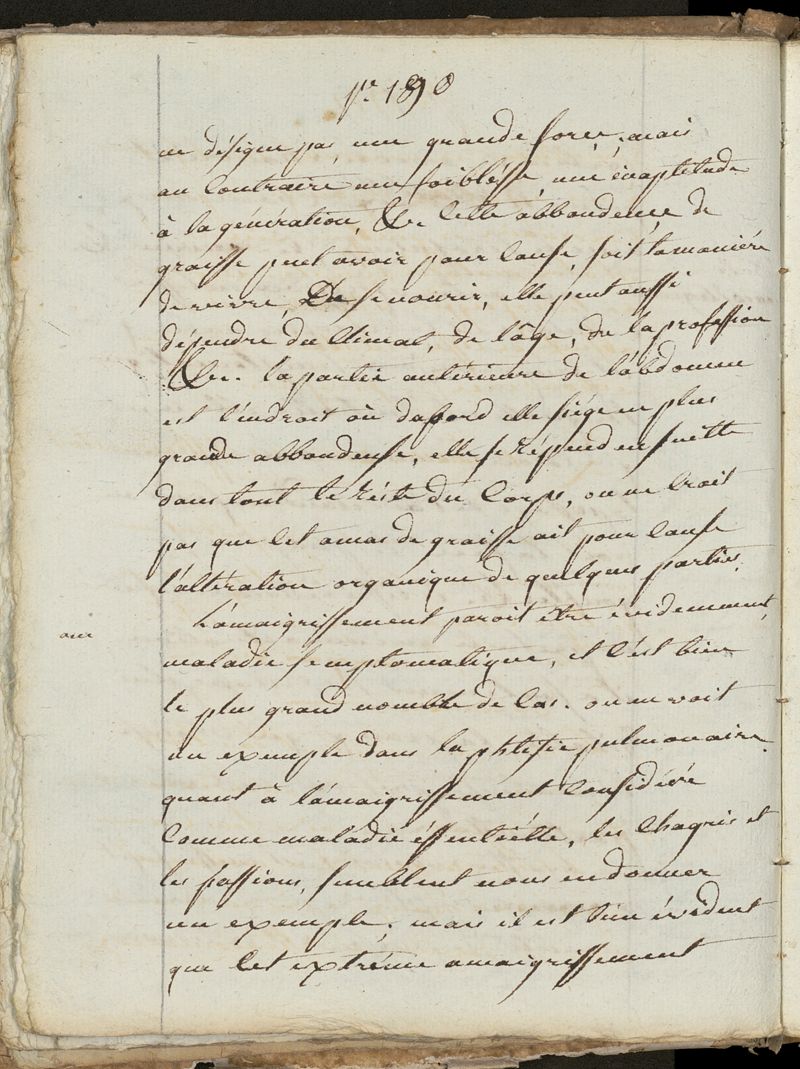 pe. 1890
ne désigne pas une grande force, mais
au contraire une foiblesse, une inaptitude
à la génération, &c. Cette abbondence de
graisse peut avoir pour cause, soit la maniére
de vivre, De se nourir, elle peut aussi
dépendre du Climat, de l'âge, de la profession
&c. la partie antérieure de l'abdomen
est l'endroit où dabord elle siége en plus
grande abbondense, elle se répend ensuitte
dans tout le réste du Corps, on ne Croit
pas que Cet amas de graisse ait pour Cause
l'altération organique de quelques parties.
L'émaigrissement paroit être évidemment
une
maladie semptomatique, et C'est bien
le plus grand nombre de Cas. on en voit
un exemple dans la phtisie pulmonaire.
quant à l'émaigrissement Considéré
Comme maladie éssentiélle, les Chagris et
les passions, semblent nous en donner
un exemple, mais il est bien évident
que Cet extréme amaigrissement